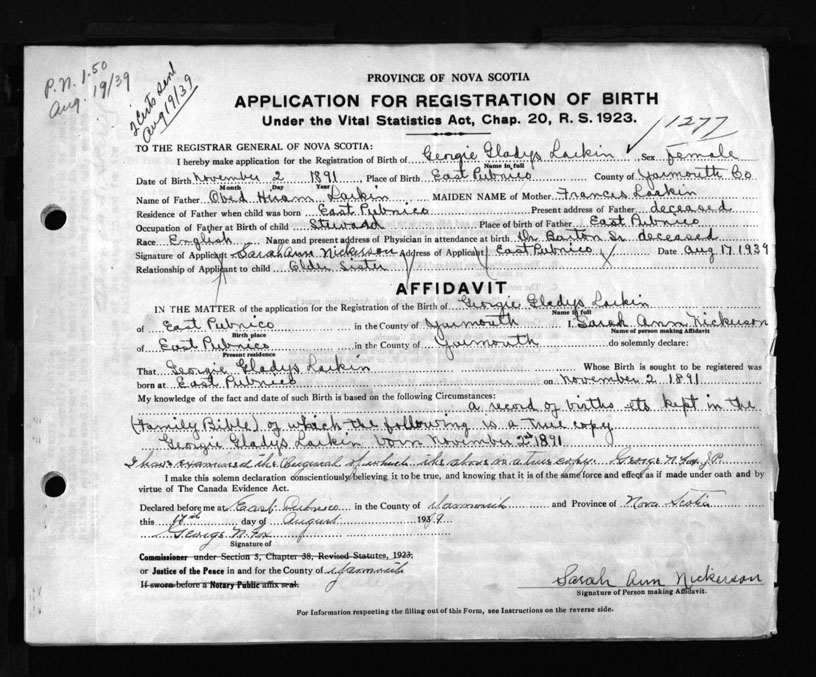 P.N. 1.50
Aug. 19/39
2 Certs sent
Aug 19/39
PROVINCE OF NOVA SCOTIA
APPLICATION FOR REGISTRATION OF BIRTH
Under the Vital Statistics Act, Chap. 20, R. S. 1923.
1277
TO THE REGISTRAR GENERAL OF NOVA SCOTIA:
I hereby make application for the Registration of Birth of Georgie Gladys Larkin Sex Female
Name in full
Date of Birth November 2 1891 Place of Birth East Pubnico County of Yarmouth Co
Month Day Year
Name of Father Obed Hiram Larkin MAIDEN NAME of Mother Francis Larkin
Residence of Father when child was born East Pubnico Present address of Father deceased
Occupation of Father at Birth of child Steward Place of birth of Father East Pubnico
Race English Name and present address of Physician in attendance at birth Dr Barton Sr deceased
Signature of Applicant Sarah Ann Nickerson Address of Applicant East Pubnico Date Aug 17 1939
Relationship of Applicant to child Older Sister
AFFIDAVIT
IN THE MATTER of the application for the Registration of the Birth of Georgie Gladys Larkin
Name in full
of East Pubnico in the County of Yarmouth I, Sarah Ann Nickerson
Birth place Name of person making Affidavit
of East Pubnico in the County of Yarmouth do solemnly declare:
Present residence
That Georgie Gladys Larkin Whose Birth is sought to be registered was
born at East Pubnico on November 2 1891
My knowledge of the fact and date of such Birth is based on the following Circumstances:
a record of births etc kept in the
(Family Bible) of which the following is a true copy
Georgie Gladys Larkin born November 2nd 1891
I have examined the Original of which the above is a true copy George N Fox J.P.
I make this solemn declaration conscientiously believing it to be true, and knowing that it is of the same force and effect as if made under oath and by
virtue of The Canada Evidence Act.
Declared before me at East Pubnico in the County of Yarmouth and Province of Nova Scotia
this 17th day of August 1939
George N. Fox
Signature of
Commissioner under Section 5, Chapter 38, Revised Statutes, 1923;
or Justice of the Peace in and for the County of Yarmouth
If sworn before a Notary Public affix seal.
Sarah Ann Nickerson
Signature of Person making Affidavit.
For Information respecting the filling out of this Form, see Instructions on the reverse side.